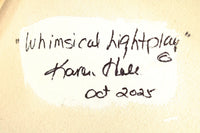 "Whimsical Lightplay"
©
Karen Hale
Oct 2025